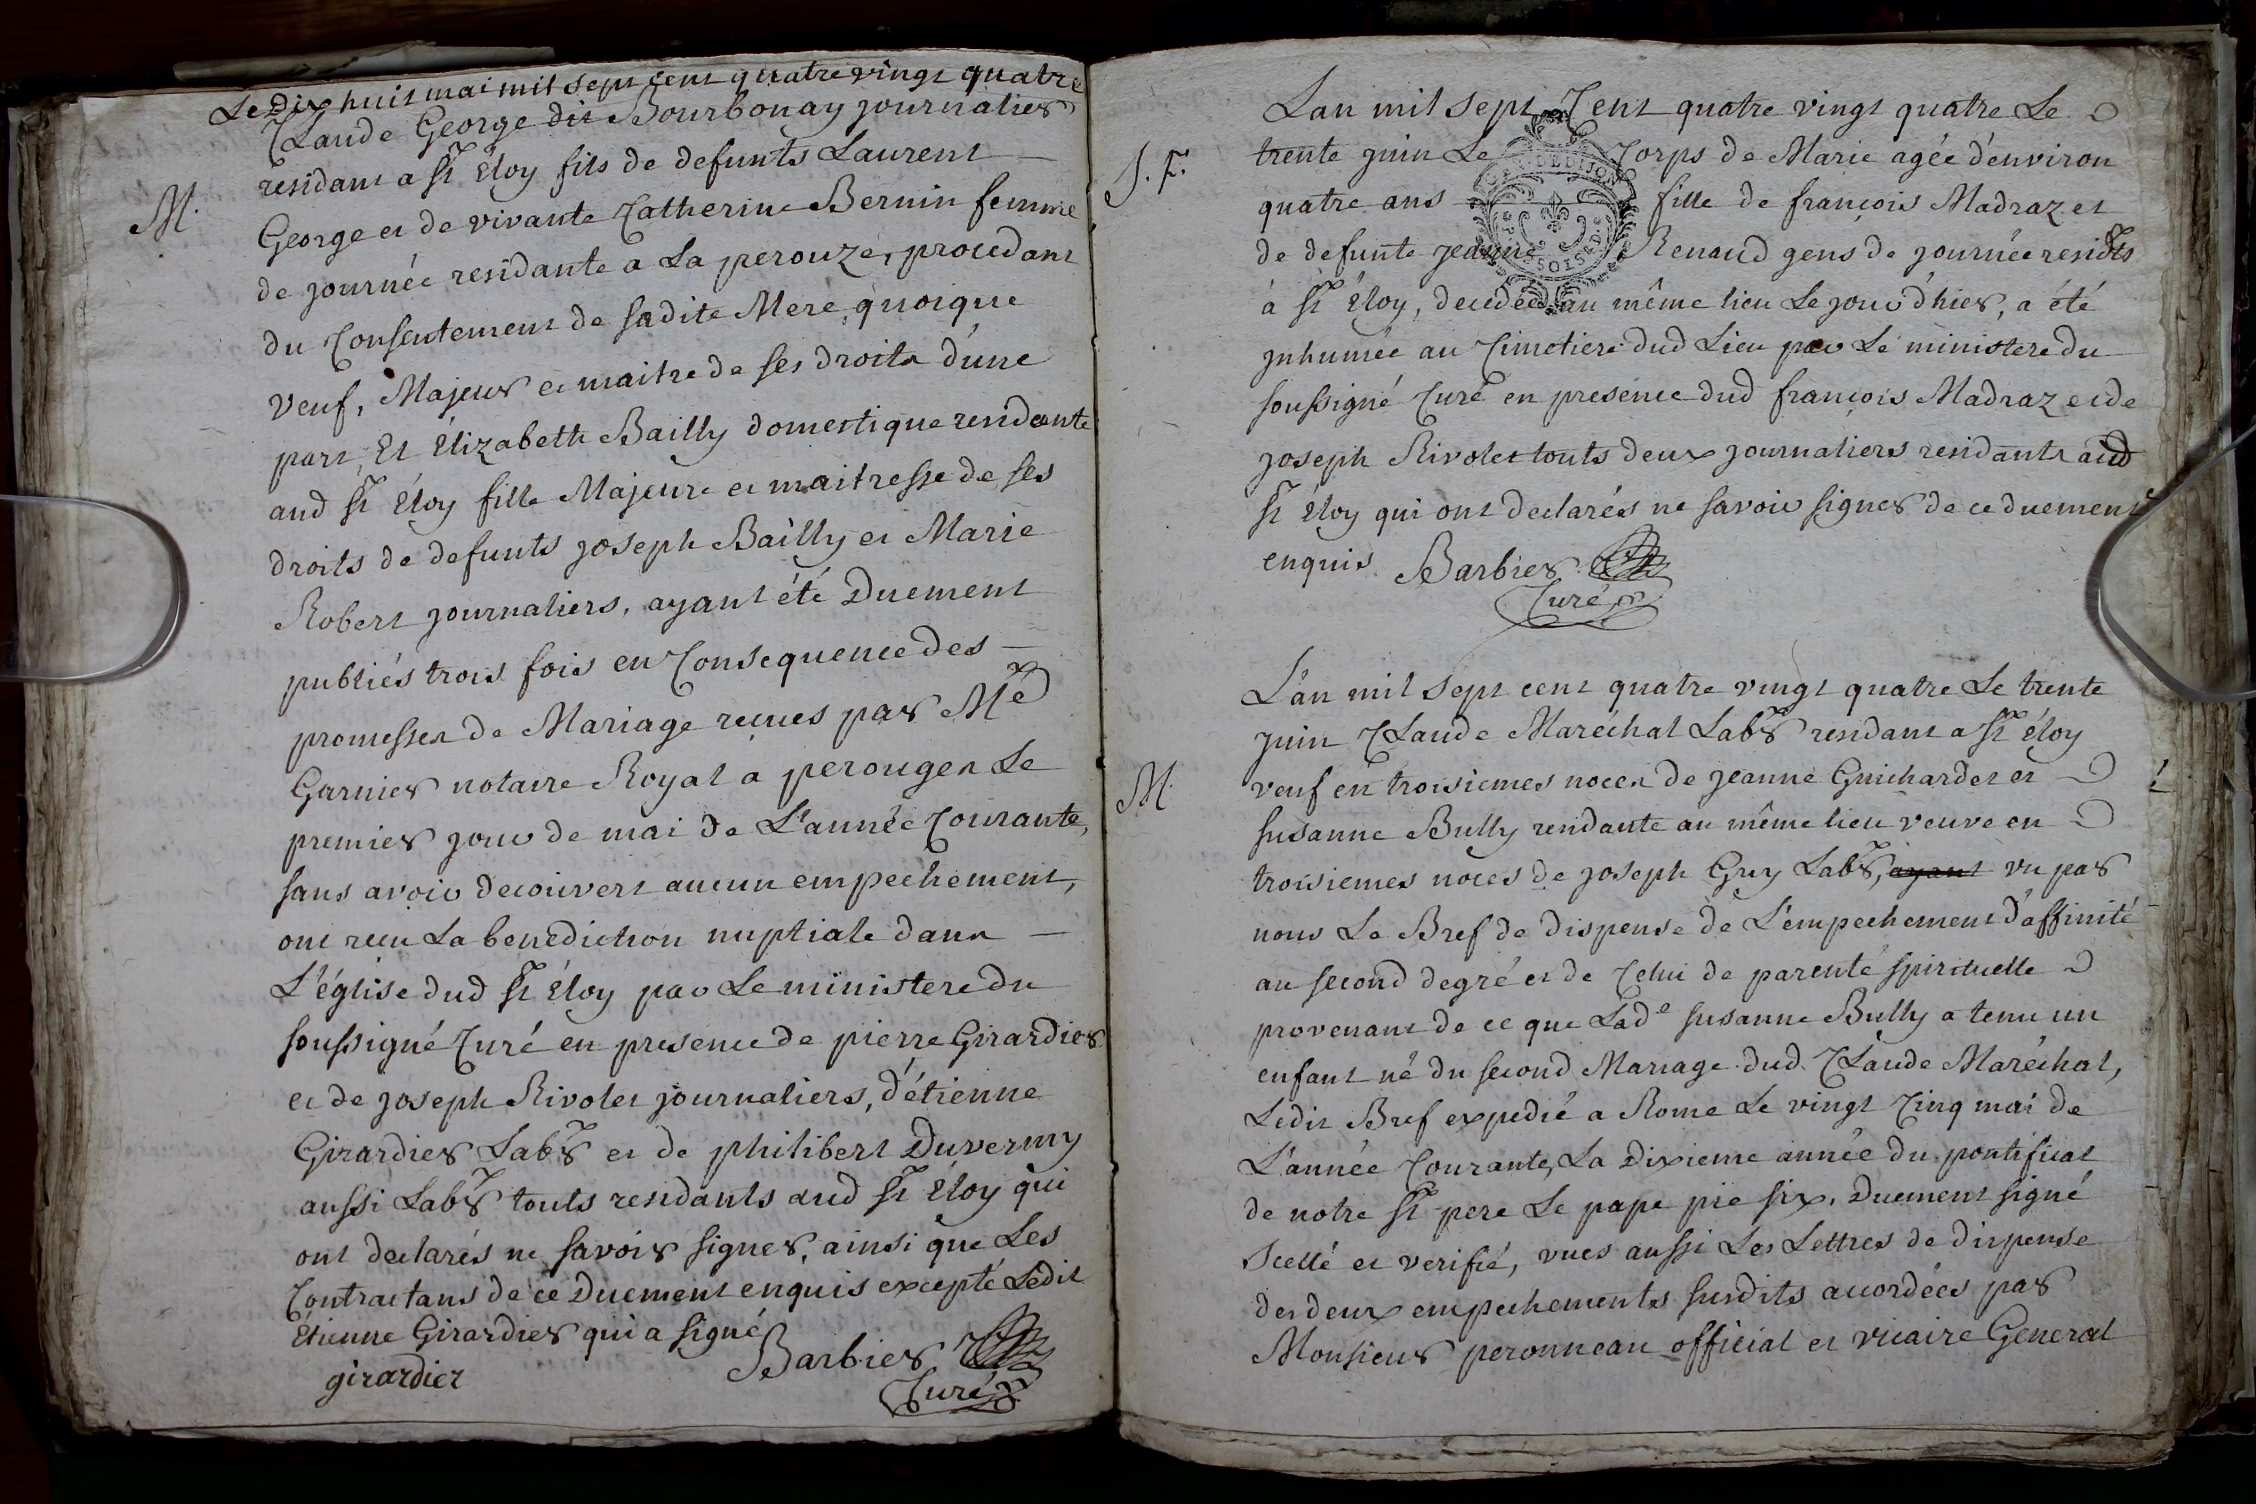 Le Dix huit mai mil sept cent quatre vingt quatre
Claude George dit Bourbonay journalier
residant a St Éloy fils de defunts Laurent
M.
George et de vivante Catherine Bernin femme
de journée residante a La perouze, procedant
du Consentement de sadite Mere, quoique
veuf, Majeur et maitre de ses droits d'une
part, Et Élizabeth Bailly domestique residante
aud St Éloy fille Majeure et maitresse de ses
droits de defunts joseph Bailly et Marie
Robert journaliers, ayant été Duement
publiés trois fois en Consequence des
promesses de Mariage reçues par Me
Garnier notaire Royal a perouges Le
premier jour de mai de L'année Courante,
sans avoir decouvert aucun empechement,
ont reçu La benediction nuptiale dans
L'église dud St Éloy par Le ministere du
soussigné Curé en presence de pierre Girardier
et de joseph Rivolet journaliers, d'étienne
Girardier Labr et de philibert Duverny
aussi Labr touts residants aud St Éloy qui
ont declarés ne savoir signer, ainsi que Les
Contractans de ce Duement enquis excepté Ledit
Étienne Girardier qui a signé
girardier
Barbier
Curé
Lan mil sept Cent quatre vingt quatre Le
trente juin Le Corps de Marie agée d'environ
S. F.
quatre ans fille de françois Madraz et
de defunte jeanne Renaud gens de journée residts
à St Éloy, decedée au même lieu Le jour d'hier, a été
jnhumée au Cimetiere dud Lieu par Le ministere du
soussigné Curé en presence dud françois Madraz et de
joseph Rivolet touts deux journaliers residants aud
St Éloy qui ont declarés ne savoir signer de ce duement
enquis
Barbier
Curé
L'an mil sept cent quatre vingt quatre Le trente
juin Claude Maréchal Labr residant a St éloy
M.
veuf en troisiemes noces de jeanne Guichardet et
susanne Bully residante au même lieu veuve en
troisiemes noces de joseph Guy Labr, ayant vu par
nous Le Bref de Dispense de L'empechement d'affinité
au second degré et de Celui de parenté spirituelle
provenant de ce que Lade susanne Bully a tenu un
enfant né du second Mariage dud Claude Maréchal,
Ledit Bref expedié a Rome Le vingt Cinq mai de
L'année Courante, La Dixieme année du pontificat
de notre St pere Le pape pie six, Duement signé
Scellé et verifié, vues aussi Les Lettres de dispense
des deux empechements susdits accordées par
Monsieur peronneau official et vicaire General